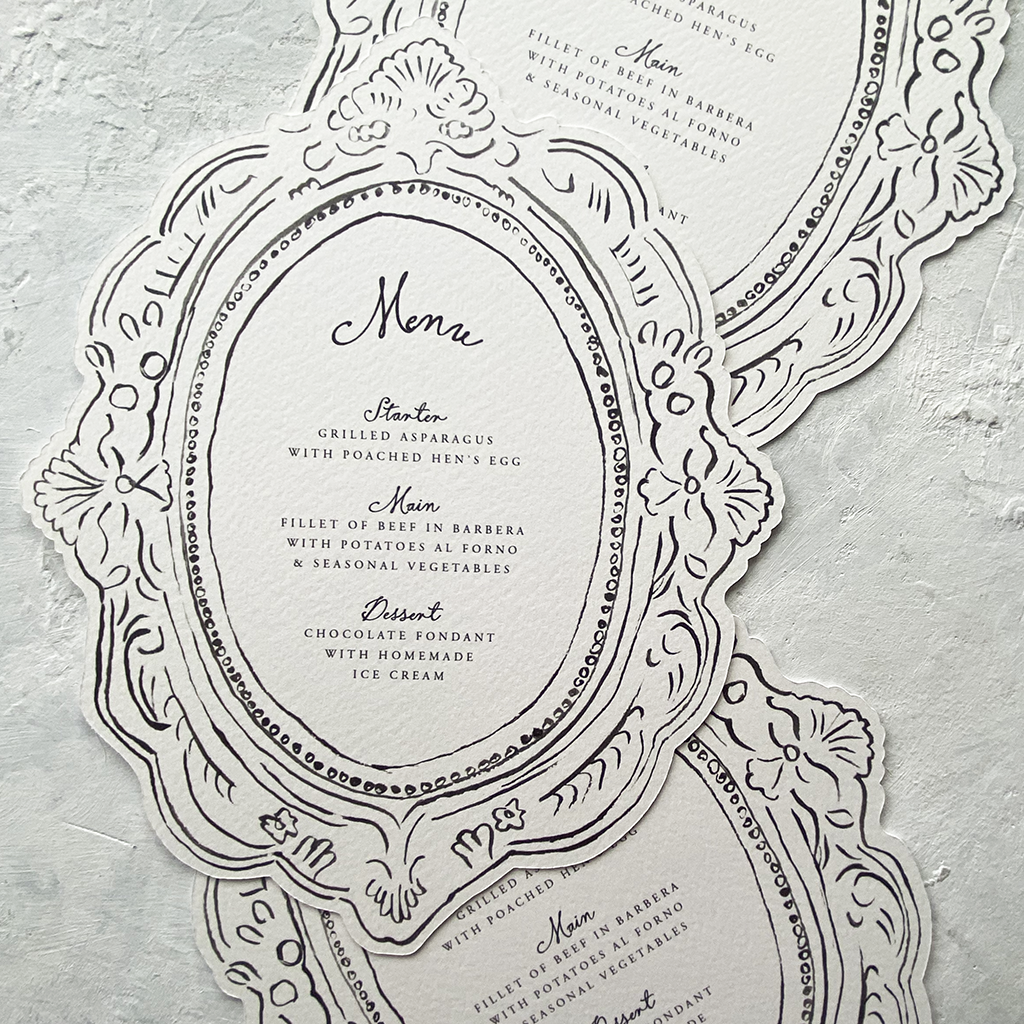 ASPARAGUS
POACHED HEN'S EGG
Main
FILLET OF BEEF IN BARBERA
WITH POTATOES AL FORNO
& SEASONAL VEGETABLES
Menu
Starter
GRILLED ASPARAGUS
WITH POACHED HEN'S EGG
Main
FILLET OF BEEF IN BARBERA
WITH POTATOES AL FORNO
& SEASONAL VEGETABLES
Dessert
CHOCOLATE FONDANT
WITH HOMEMADE
ICE CREAM
GRILLED
WITH POACHED
Main
FILLET OF BEEF IN BARBERA
WITH POTATOES AL FORNO
SEASONAL VEGETABLES
Dessert